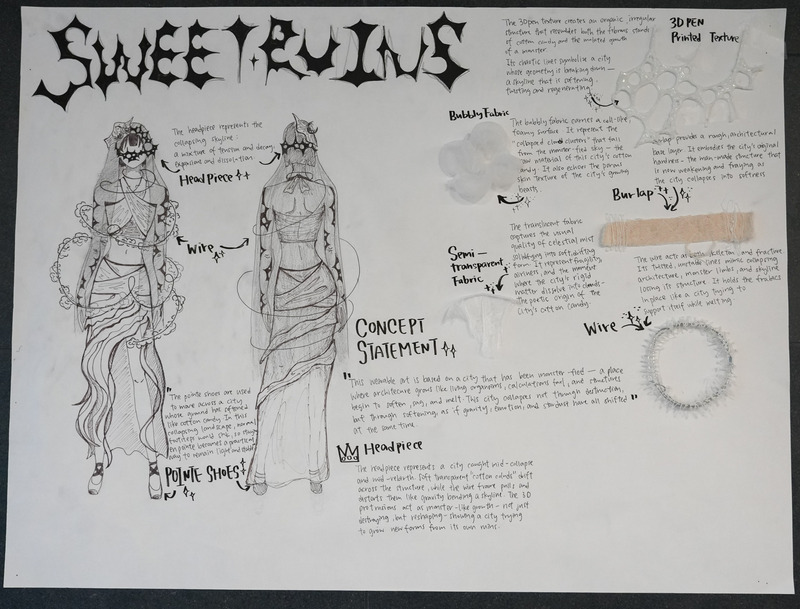 SWEET RUINS
The headpiece represents the
collapsing skyline -
a mixture of tension and decay,
expansion and dissolution.
Headpiece
Wire
"The pointe shoes are used
to move across a city
whose ground has softened
like cotton candy. In this
collapsing landscape, normal
footsteps would sink, so
en pointe becomes a practical
way to remain light and
POINTE SHOES
CONCEPT
STATEMENT
"This wearable art is based on a city that has been monster-fied — a place
where architecture grows like living organisms, calculations fail, and structures
begin to soften, sag, and melt. This city collapses not through destruction,
but through softening, as if gravity, emotion, and stardust have all shifted
at the same time. "
Headpiece
The headpiece represents a city caught mid-collapse
and mid-rebirth. Soft transparent "cotton clouds" drift
across the structure, while the wire frame pulls and
distorts them like gravity bending a skyline. The 3D
protrusions act as monster-like growth - not just
destroying, but reshaping - showing a city trying
to grow new forms from its own ruins.
The 3D pen texture creates an organic, irregular
structure that resembles both the fibrous strands
of cotton candy and the mutated growth
of a monster.
Its chaotic lines symbolize a city
whose geometry is breaking down —
a skyline that is softening,
twisting and regenerating.
3D PEN
Printed Texture
Bubbly Fabric
The bubbly fabric carries a cell-like,
foamy surface. It represents the
"collapsed cloud clusters" that fall
from the monster-fied sky — the
raw material of this city's cotton
candy. It also echoes the
skin texture of the city's growing
beasts.
Burlap provides a rough, architectural
base layer. It embodies the city's original
hardness - the man-made structure that
is now weakening and fraying as
the city collapses into softness
Burlap
Semi-
transparent
Fabric
The translucent fabric
captures the visual
quality of celestial mist
solidifying into soft, drifting
form. It represents fragility,
airiness, and the moment
where the city's rigid
matter dissolves into clouds-
The poetic origin of the
city's cotton candy.
The wire acts as both skeleton and fracture
Its twisted, unstable lines mimic collapsing
architecture, monster limbs, and skyline
losing its structure. It holds the
in place like a city trying to
support itself while melting
Wire